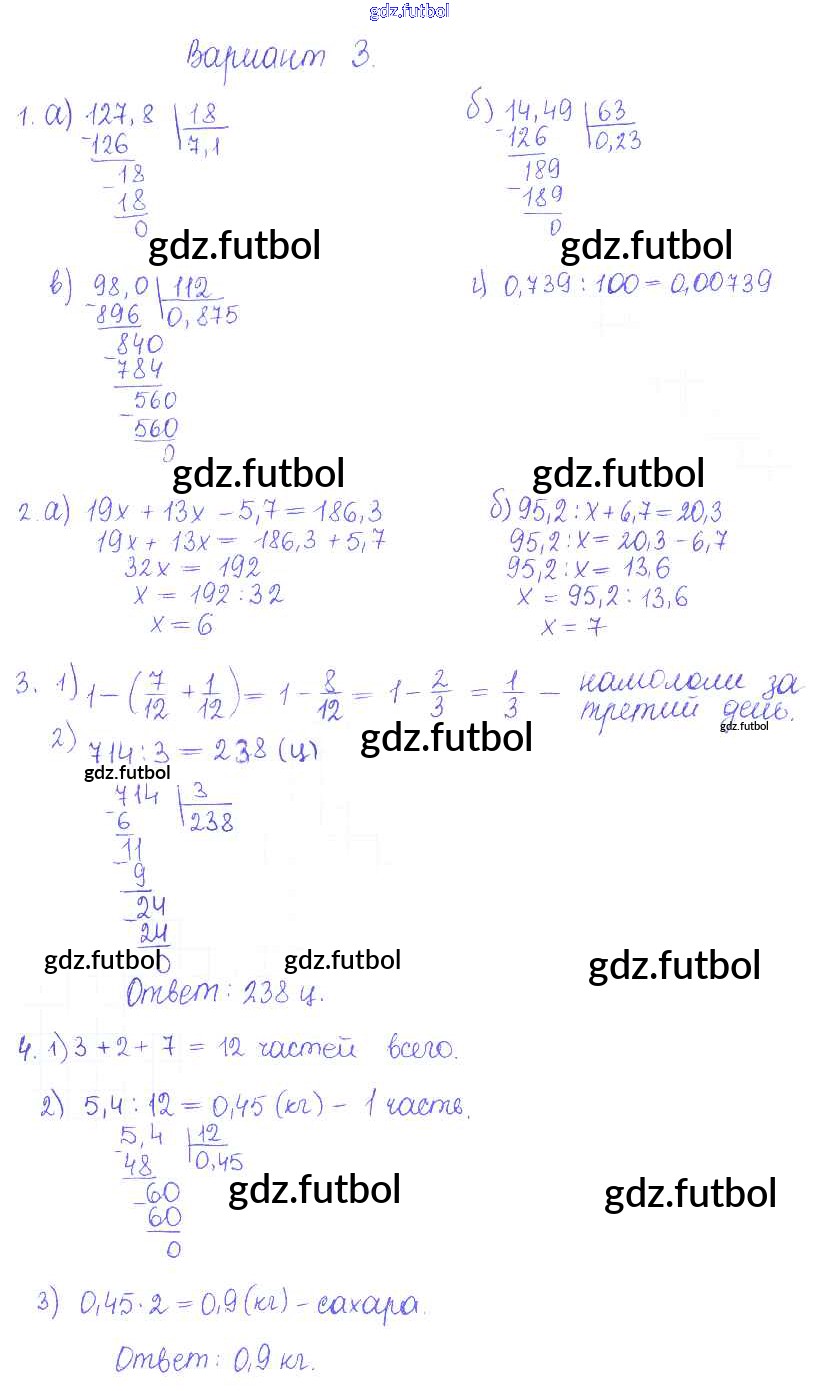 gdz.futbol
Вариант 3.
1. а) 127,8 | 18    б) 14,49 | 63
-126 | 7,1    -126 | 0,23
18    189
-18    -189
0    0
gdz.futbol    gdz.futbol
в) 98,0 | 112    г) 0,739 : 100 = 0,00739
-896 | 0,875
840
-784
560
-560
0
gdz.futbol    gdz.futbol
2. а) 19х + 13х - 5,7 = 186,3    б) 95,2 : х + 6,7 = 20,3
19х + 13х = 186,3 + 5,7    95,2 : х = 20,3 - 6,7
32х = 192    95,2 : х = 13,6
х = 192 : 32    х = 95,2 : 13,6
х = 6    х = 7
3. 1) 1 - (7/12 + 1/12) = 1 - 8/12 = 1 - 2/3 = 1/3 - намололи за
третий день.
gdz.futbol    gdz.futbol
2) 714 : 3 = 238 (ц)
gdz.futbol
714 | 3
-6 | 238
11
-9
-24
24
0
gdz.futbol    gdz.futbol    gdz.futbol
Ответ: 238 ц.
4. 1) 3 + 2 + 7 = 12 частей всего.
2) 5,4 : 12 = 0,45 (кг) - 1 часть.
5,4 | 12
-48 | 0,45
-60
60
0
gdz.futbol    gdz.futbol
3) 0,45 · 2 = 0,9 (кг) - сахара.
Ответ: 0,9 кг.